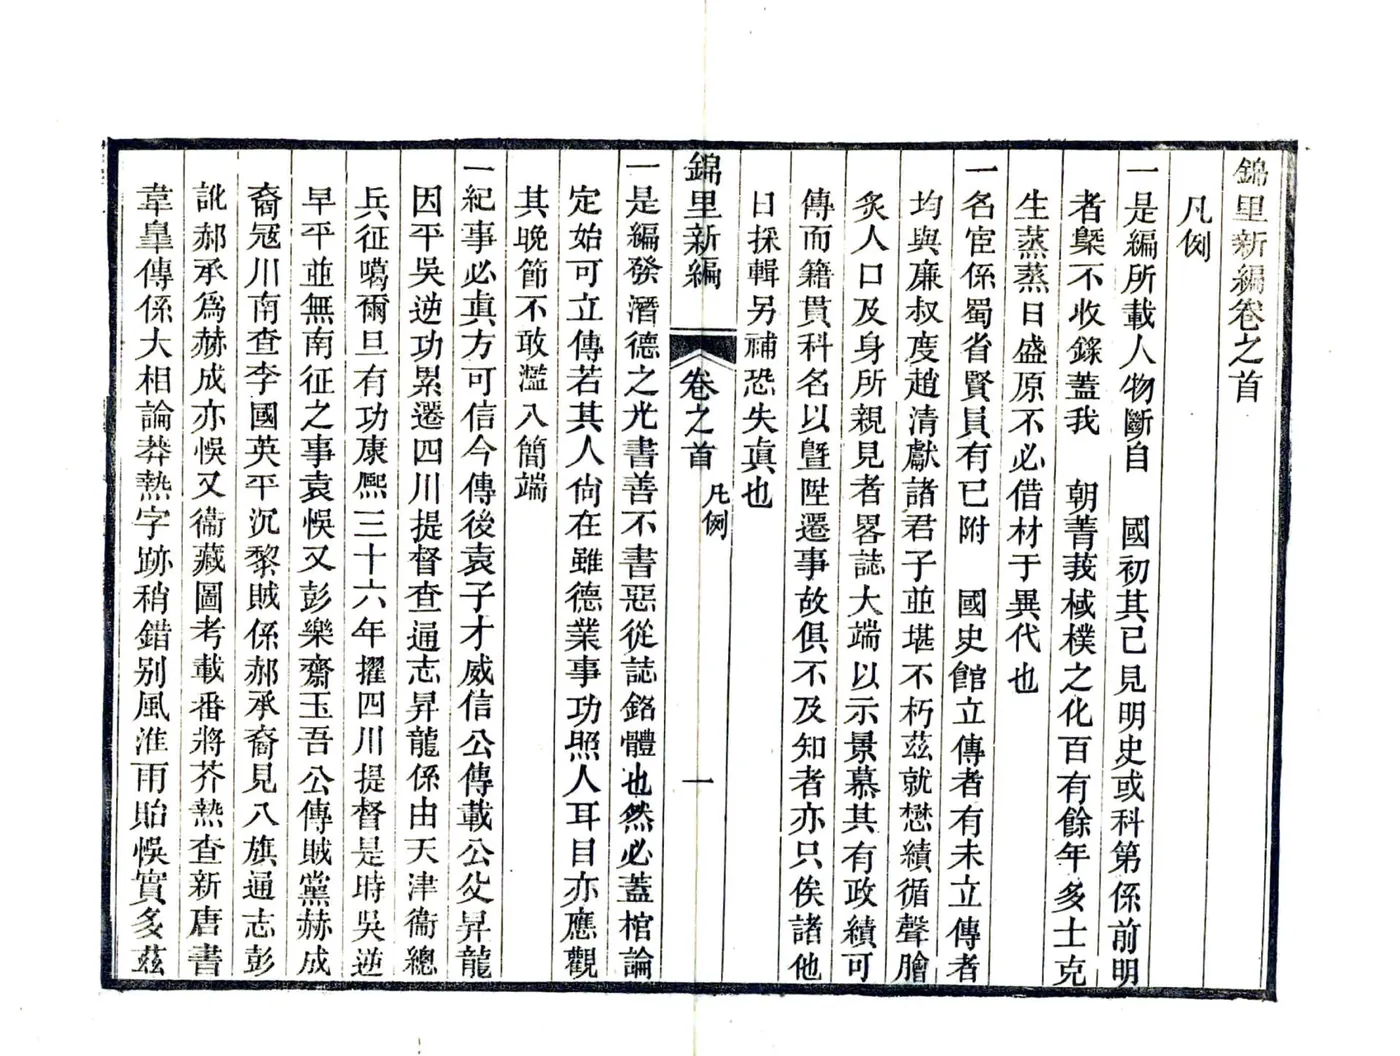 錦里新編卷之首
凡例
一是編所載人物斷自　國初其已見明史或科第係前明
者槩不收錄蓋我　朝菁莪棫樸之化百有餘年多士克
生蒸蒸日盛原不必借材于異代也
一名宦係蜀省賢員有已附　國史館立傳者有未立傳者
均與廉叔度趙清獻諸君子並堪不朽茲就懋績循聲膾
炙人口及身所親見者畧誌大端以示景慕其有政績可
傳而籍貫科名以曁陞遷事故俱不及知者亦只俟諸他
日採輯另補恐失眞也
錦里新編　卷之首　凡例　一
一是編發潛德之光書善不書惡從誌銘體也然必蓋棺論
定始可立傳若其人尙在雖德業事功照人耳目亦應觀
其晚節不敢濫入簡端
一紀事必眞方可信今傳後袁子才威信公傳載公父昇龍
因平吳逆功累遷四川提督查通志昇龍係由天津衞總
兵征噶爾旦有功康熙三十六年擢四川提督是時吳逆
早平並無南征之事袁悞又彭樂齋玉吾公傳賊黨赫成
裔冠川南查李國英平沉黎賊係郝承裔見八旗通志彭
訛郝承爲赫成亦悞又衞藏圖考載番將芥熱查新唐書
韋臯傳係大相論莽熱字跡稍錯别風淮雨貽悞實多茲